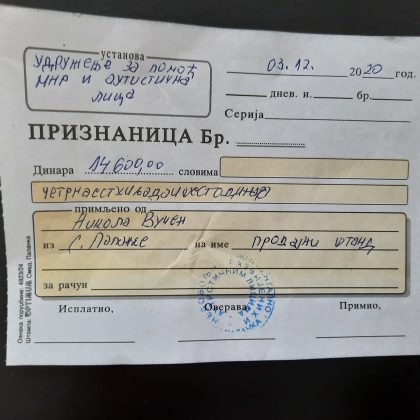 установа
удружење за помоћ
МНР и аутистична
лица
03.12. 2020 год.
днев. и. бр.
Серија
ПРИЗНАНИЦА Бр.
Динара 14600,00 словима
примљено од
Никола Вучен
из С. Паланке на име продајни штанд
за рачун
Исплатио, Оверава, Примио,
Ознака поруџбине: 4823/24